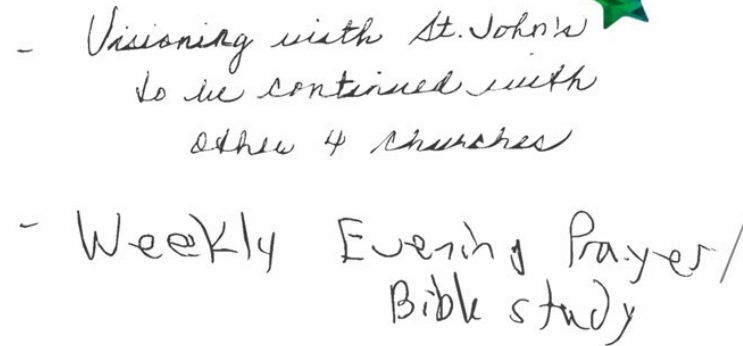 - Visioning with St. John's
to be continued with
other 4 churches
- Weekly Evening Prayer/
Bible study